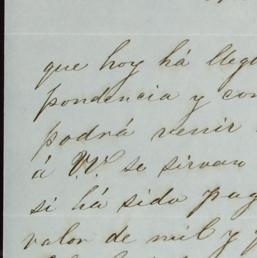 que hoy há lleg
pondencia y con
podrá venir
á V.V. se sirvan
si há sido pag
valor de mil y